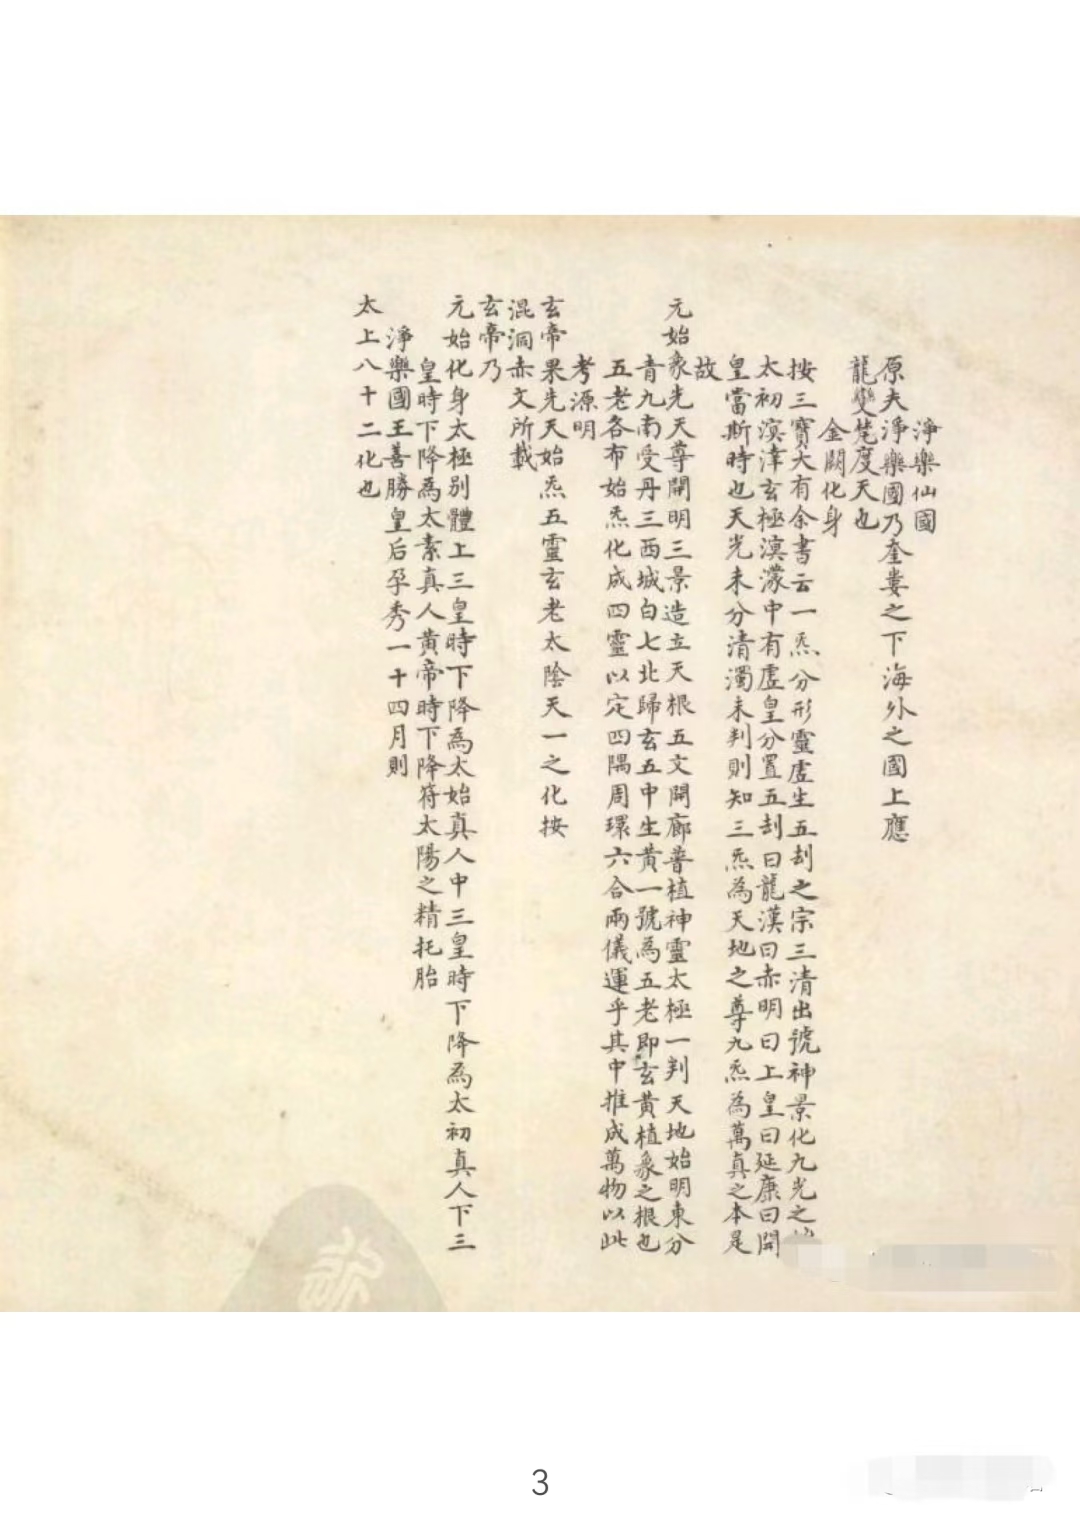 淨樂仙國
原夫淨樂國乃奎婁之下海外之國上應
龍變梵度天也
金闕化身
按三寶大有余書云一炁分形靈虛生五刦之宗三清出號神景化九光之
太初溟涬玄極濛中有虛皇分置五刦曰龍漢曰赤明曰上皇曰延康曰開
皇當斯時也天光未分清濁未判則知三炁為天地之尊九炁為萬真之本是
故
元始象先天尊開明三景造立天根五文開廊普植神靈太極一判天地始明東分
青九南受丹三西城白七北歸玄五中生黃一號為五老即玄黃植象之根也
五老各布始炁化成四靈以定四隅周環六合兩儀運乎其中推成萬物以此
考源明
玄帝果先天始炁五靈玄老太陰天一之化按
混洞赤文所載
玄帝乃
元始化身太極別體上三皇時下降為太始真人中三皇時下降為太初真人下三
皇時下降為太素真人黃帝時下降符太陽之精托胎
淨樂國王善勝皇后孕秀一十四月則
太上八十二化也
3